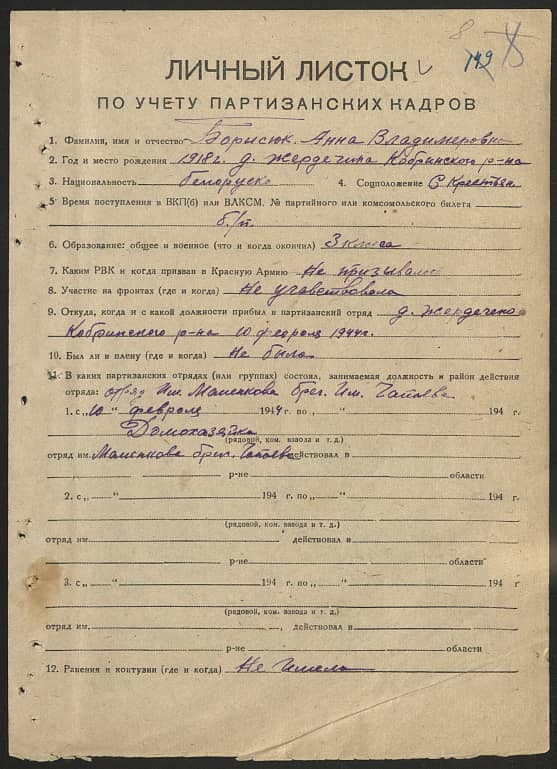 8
149
ЛИЧНЫЙ ЛИСТОК
ПО УЧЕТУ ПАРТИЗАНСКИХ КАДРОВ
1. Фамилия, имя и отчество Борисюк Анна Владимеровн
2. Год и место рождения 1918 г. д. Жердечина Кобринского р-на
3. Национальность белоруска 4. Соцположение С Крестьян
5 Время поступления в ВКП(б) или ВЛКСМ, № партийного или комсомольского билета
б/п.
6. Образование: общее и военное (что и когда окончил) 3 класса
7. Каким РВК и когда призван в Красную Армию Не призывалс
8. Участие на фронтах (где и когда) Не учавствовала
9. Откуда, когда и с какой должности прибыл в партизанский отряд д. Жердечено
Кобринского р-на 10 февраля 1944 г.
10. Был ли в плену (где и когда) Не была
11. В каких партизанских отрядах (или группах) состоял, занимаемая должность и район действия
отряда: отряд Им. Маленкова бриг. Им. Чапаева
1. с „10“ февраля 1944 г. по „ “ 194 г.
Домохазяйка
(рядовой, ком. взвола и т. д.)
отряд им. Маленкова бриг. Чапаева действовал в
р-не области
2. с „ “ 194 г. по „ “ 194 г.
(рядовой, ком. взвода и т. д.)
отряд им. , действовал в
р-не области
3. с „ “ 194 г. по „ “ 194 г
(рядовой, ком. взвода и т. д.)
отряд им. , действовал в
р-не области
12. Ранения и контузии (где и когда) Не имела